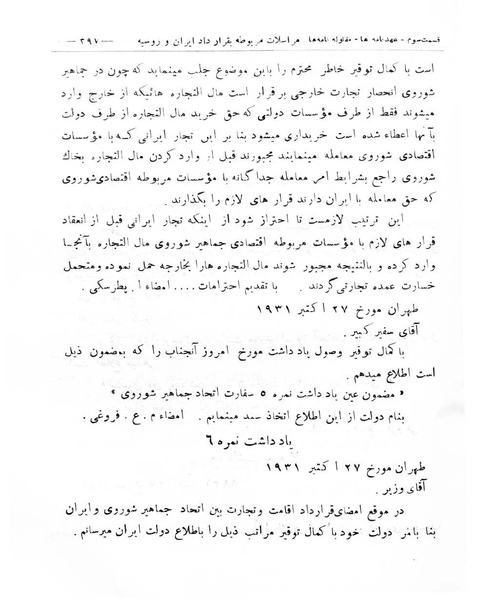 قسمت سوم - عهدنامه ها - مقاوله نامه‌ها مراسلات مربوطه بقرار داد ایران و روسیه ۳۹۷
است با کمال توقیر خاطر محترم را باین موضوع جلب مینماید که چون در جماهیر
شوروی انحصار تجارت خارجی برقرار است مال التجاره هائیکه از خارج وارد
میشوند فقط از طرف مؤسسات دولتی که حق خرید مال التجاره از طرف دولت
بآنها اعطاء شده است خریداری میشود بنا بر این تجار ایرانی که با مؤسسات
اقتصادی شوروی معامله مینمایند مجبورند قبل از وارد کردن مال التجاره بخاك
شوروی راجع بشرایط امر معامله جدا گانه با مؤسسات مربوطه اقتصادی شوروی
که حق معامله با ایران دارند قرار های لازم را بگذارند .
این ترتیب لازمست تا احتراز شود از اینکه تجار ایرانی قبل از انعقاد
قرار های لازم با مؤسسات مربوطه اقتصادی جماهیر شوروی مال التجاره بآنجا
وارد کرده و بالنتیجه مجبور شوند مال التجاره هارا بخارجه حمل نموده ومتحمل
خسارت عمده تجارتی گردند . با تقدیم احترامات .... امضاء ا . پطرسکی .
طهران مورخ ۲۷ اکتبر ۱۹۳۱
آقای سفیر کبیر .
با کمال توقیر وصول یاد داشت مورخ امروز آنجناب را که بمضمون ذیل
است اطلاع میدهم .
« مضمون عین یاد داشت نمره ۵ سفارت اتحاد جماهیر شوروی »
بنام دولت از این اطلاع اتخاذ سند مینمایم . امضاء م . ع . فروغی .
یاد داشت نمره ۶
طهران مورخ ۲۷ اکتبر ۱۹۳۱
آقای وزیر .
در موقع امضای قرارداد اقامت وتجارت بین اتحاد جماهیر شوروی وایران
بنا بامر دولت خود با کمال توقیر مراتب ذیل را باطلاع دولت ایران میرسانم .